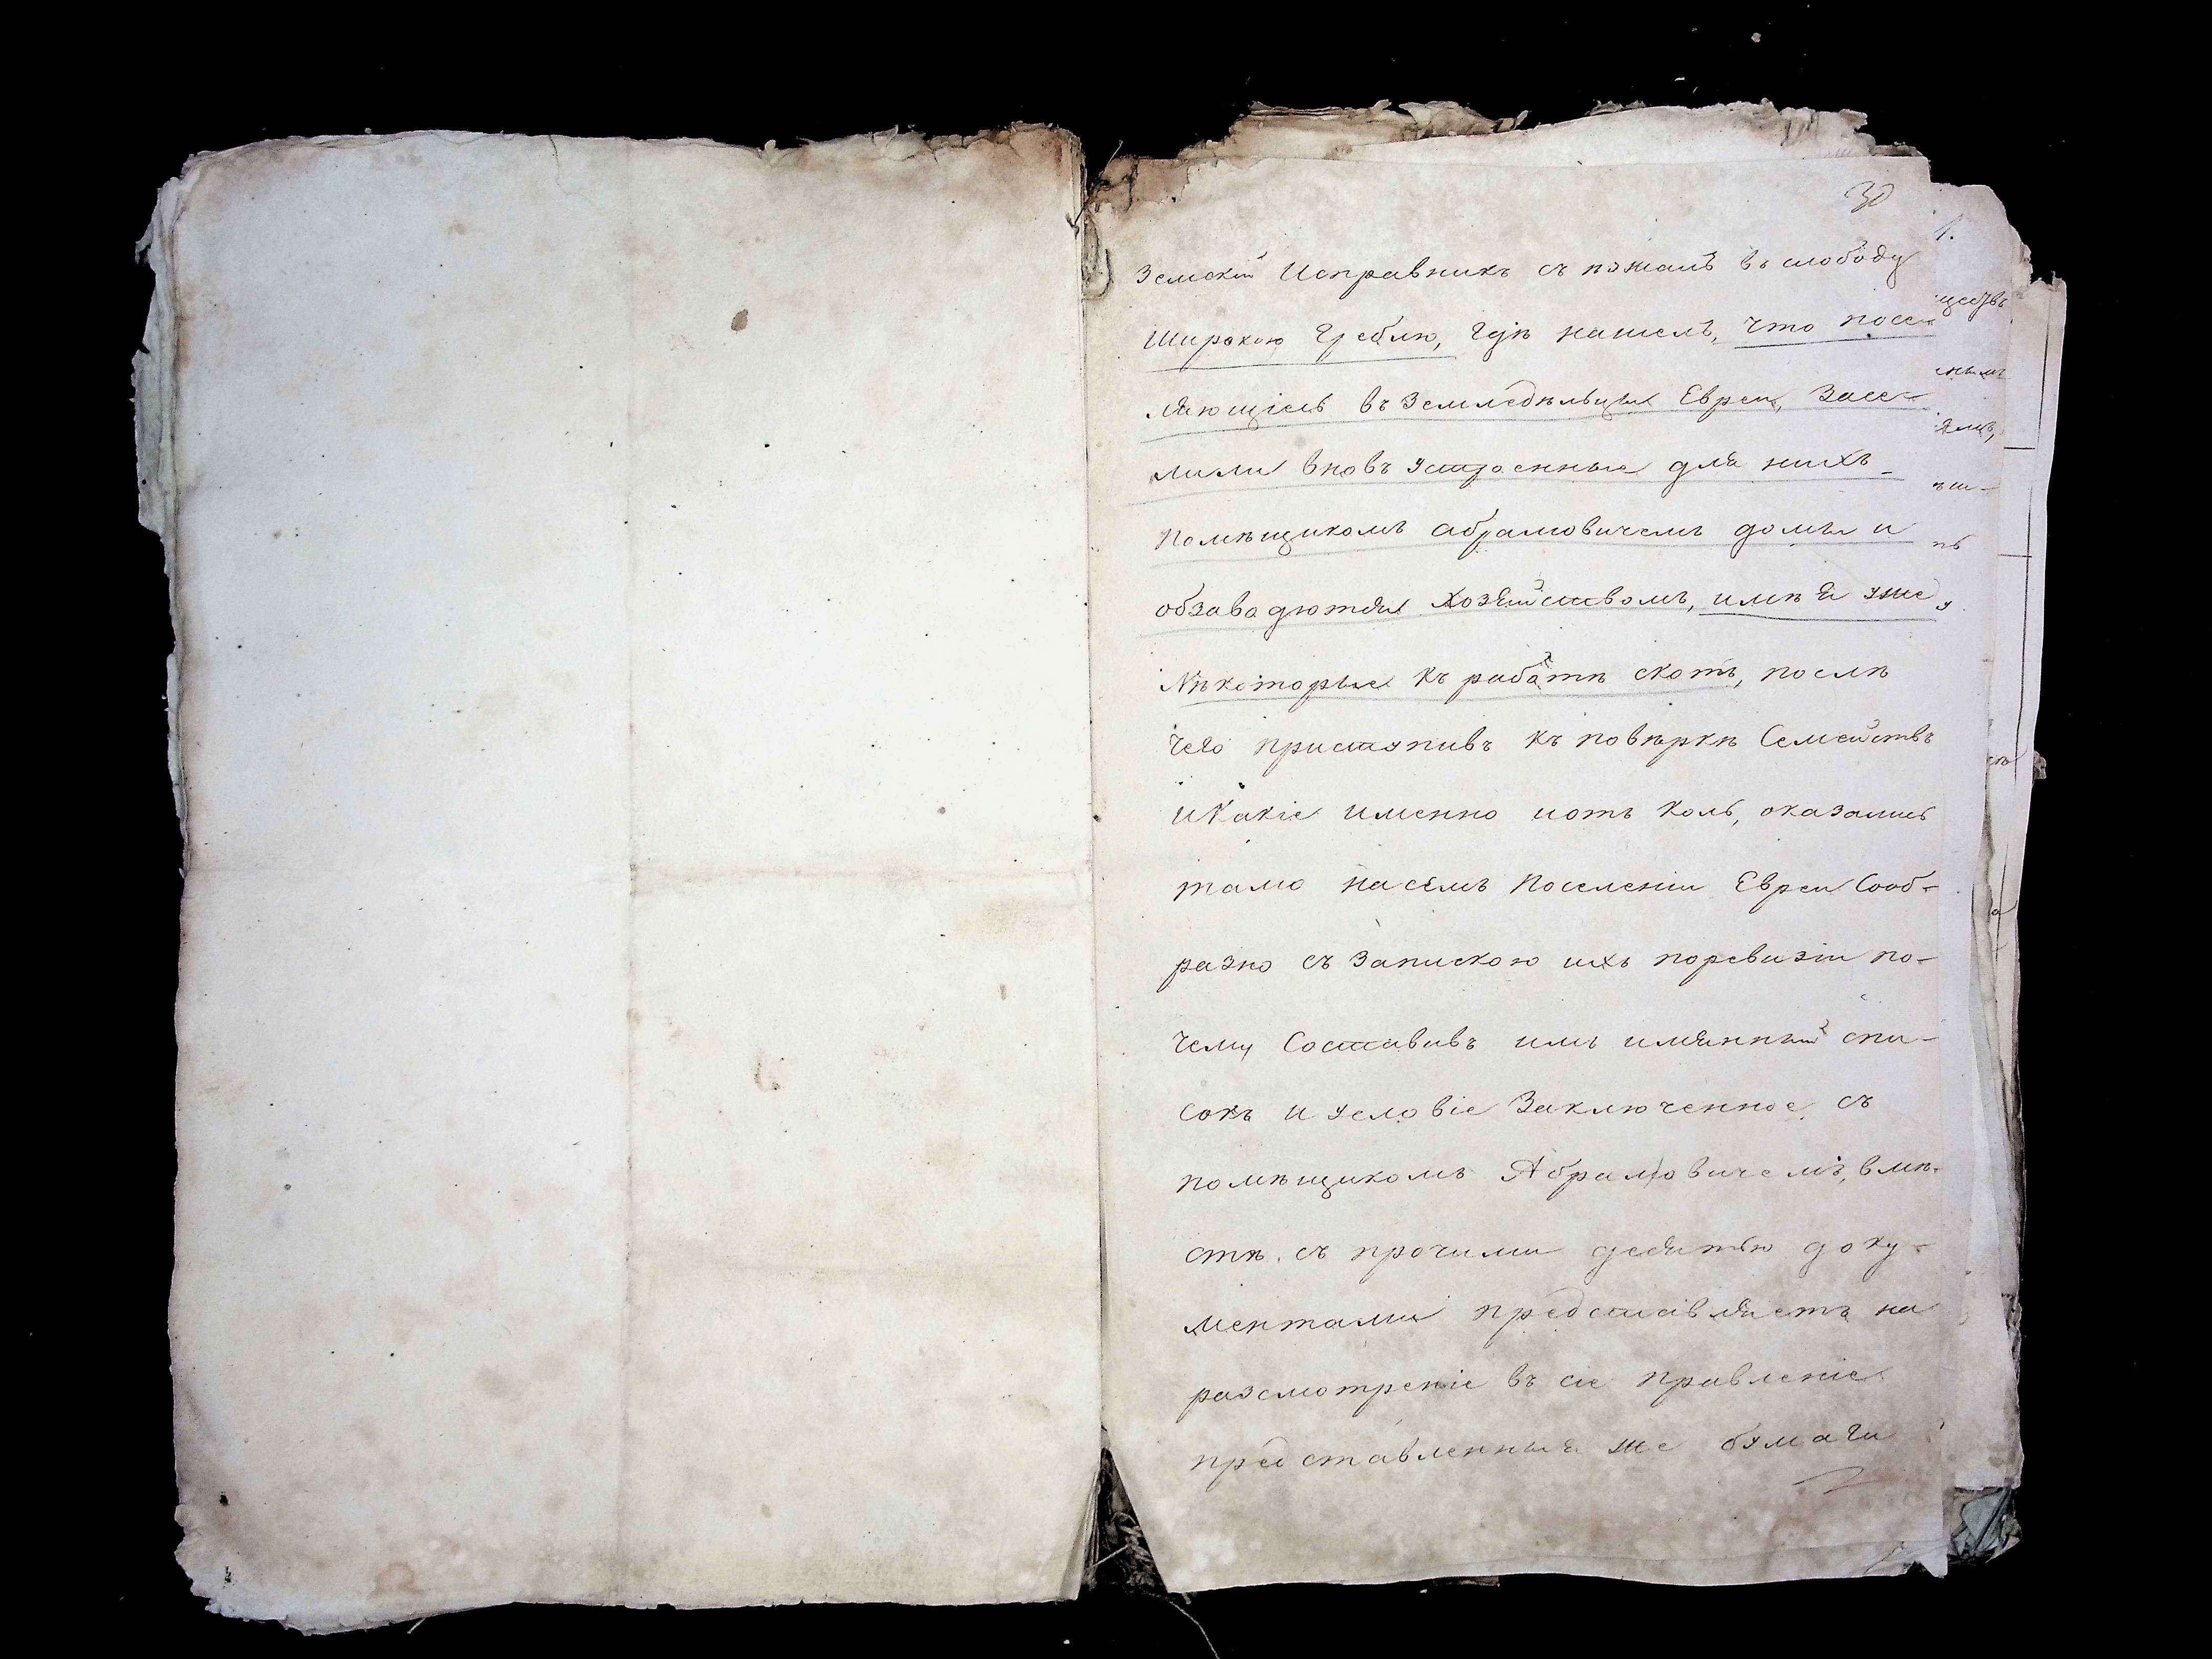 30
Земскій Исправникъ съѣзжалъ въ слободу
Широкою Греблю, гдѣ нашелъ, что посе-
ляющіесь въ Земледѣльцы Евреи, Засе-
лили вновь устроенные для нихъ
Помѣщикомъ абрамовичемъ домы и
обзаводются Хозяйствомъ, имѣя уже
Нѣкоторые къ работѣ скотъ, послѣ
чего приступивъ къ повѣркѣ Семействъ
и Какіе именно
тамо на семъ Поселеніи Евреи Сооб-
разно съ Запискою ихъ по ревизіи по-
чему Составивъ имъ имянный спи-
сокъ и условіе Заключенное съ
помѣщикомъ Абрамовичемъ, вмѣ-
стѣ съ прочими десятью доку-
ментами представляетъ на
разсмотреніе въ сіе правленіе
представленныя же бумаги